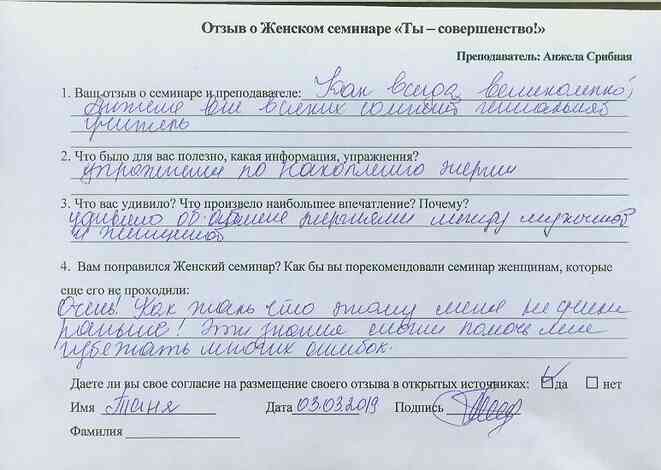 Отзыв о Женском семинаре «Ты – совершенство!»
Преподаватель: Анжела Срибная
1. Ваш отзыв о семинаре и преподавателе: Как всегда, великолепно!
Анжела вне всяких сомнений гениальная
учитель
2. Что было для вас полезно, какая информация, упражнения?
упражнения по накоплению энергии
3. Что вас удивило? Что произвело наибольшее впечатление? Почему?
удивило об обмене энергиями между мужчиной
и женщиной
4. Вам понравился Женский семинар? Как бы вы порекомендовали семинар женщинам, которые
еще его не проходили:
Очень! Как жаль что этому меня не учили
раньше! Эти знания помочь мне
избежать многих ошибок.
Даете ли вы свое согласие на размещение своего отзыва в открытых источниках: да нет
Имя Таня Дата 03.03.2019 Подпись
Фамилия